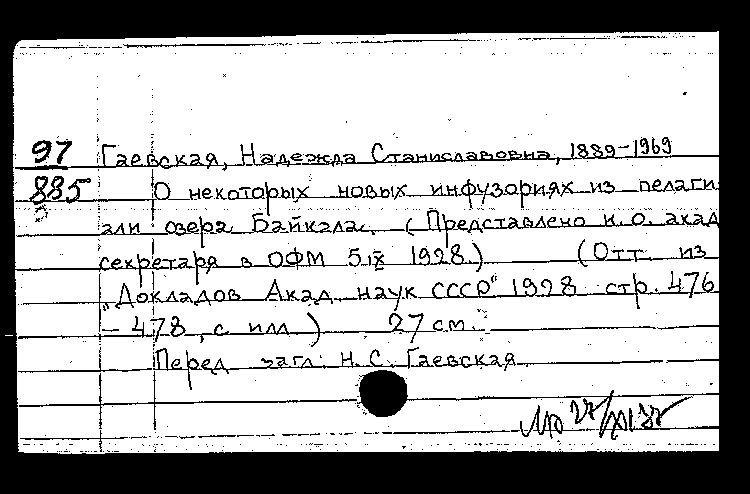 97 Гаевская, Надежда Станиславовна, 1889-1969
885 О некоторых новых инфузориях из пелаги
али озера Байкала. (Представлено н. о. акад
секретаря в ОФМ 5.IX 1928.) (Отт. из
„Докладов Акад. наук СССР" 1928 стр. 476
- 478, с илл.) 27 см.
Перед загл: Н. С. Гаевская